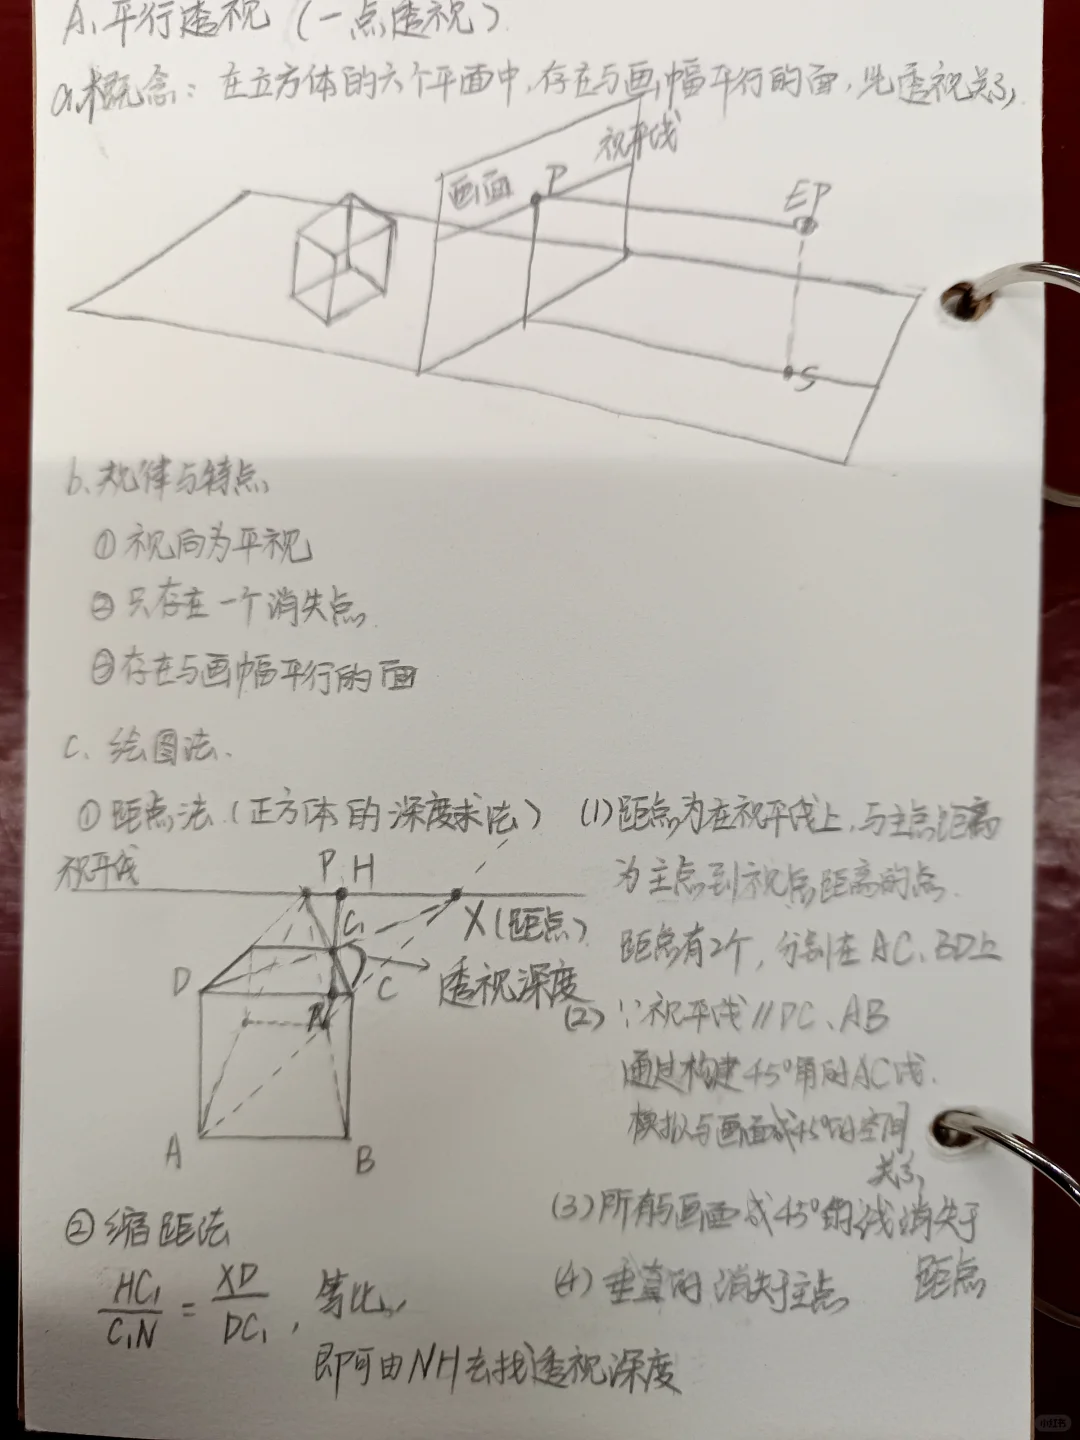 A、平行透视（一点透视）
a.概念：在立方体的六个平面中，存在与画幅平行的面，此透视关系
视平线
画面 P
EP
S
b、规律与特点
①视向为平视
②只存在一个消失点
③存在与画幅平行的面
C、绘图法、
①距点法（正方体的深度求法）
视平线 P H
C₁ X（距点）
D C 透视深度
N
A B
(1)距点为在视平线上，与主点距离
为主点到视点距离的点
距点有2个，分别在AC、BD上
(2)∵视平线∥DC、AB
通过构建45°角的AC线
模拟与画面成45°的空间
关系
(3)所有与画面成45°的线消失于
距点
(4)垂直的消失于主点
②缩距法
HC₁/C₁N = XD/DC₁，等比，
即可由NH去找透视深度
小红书